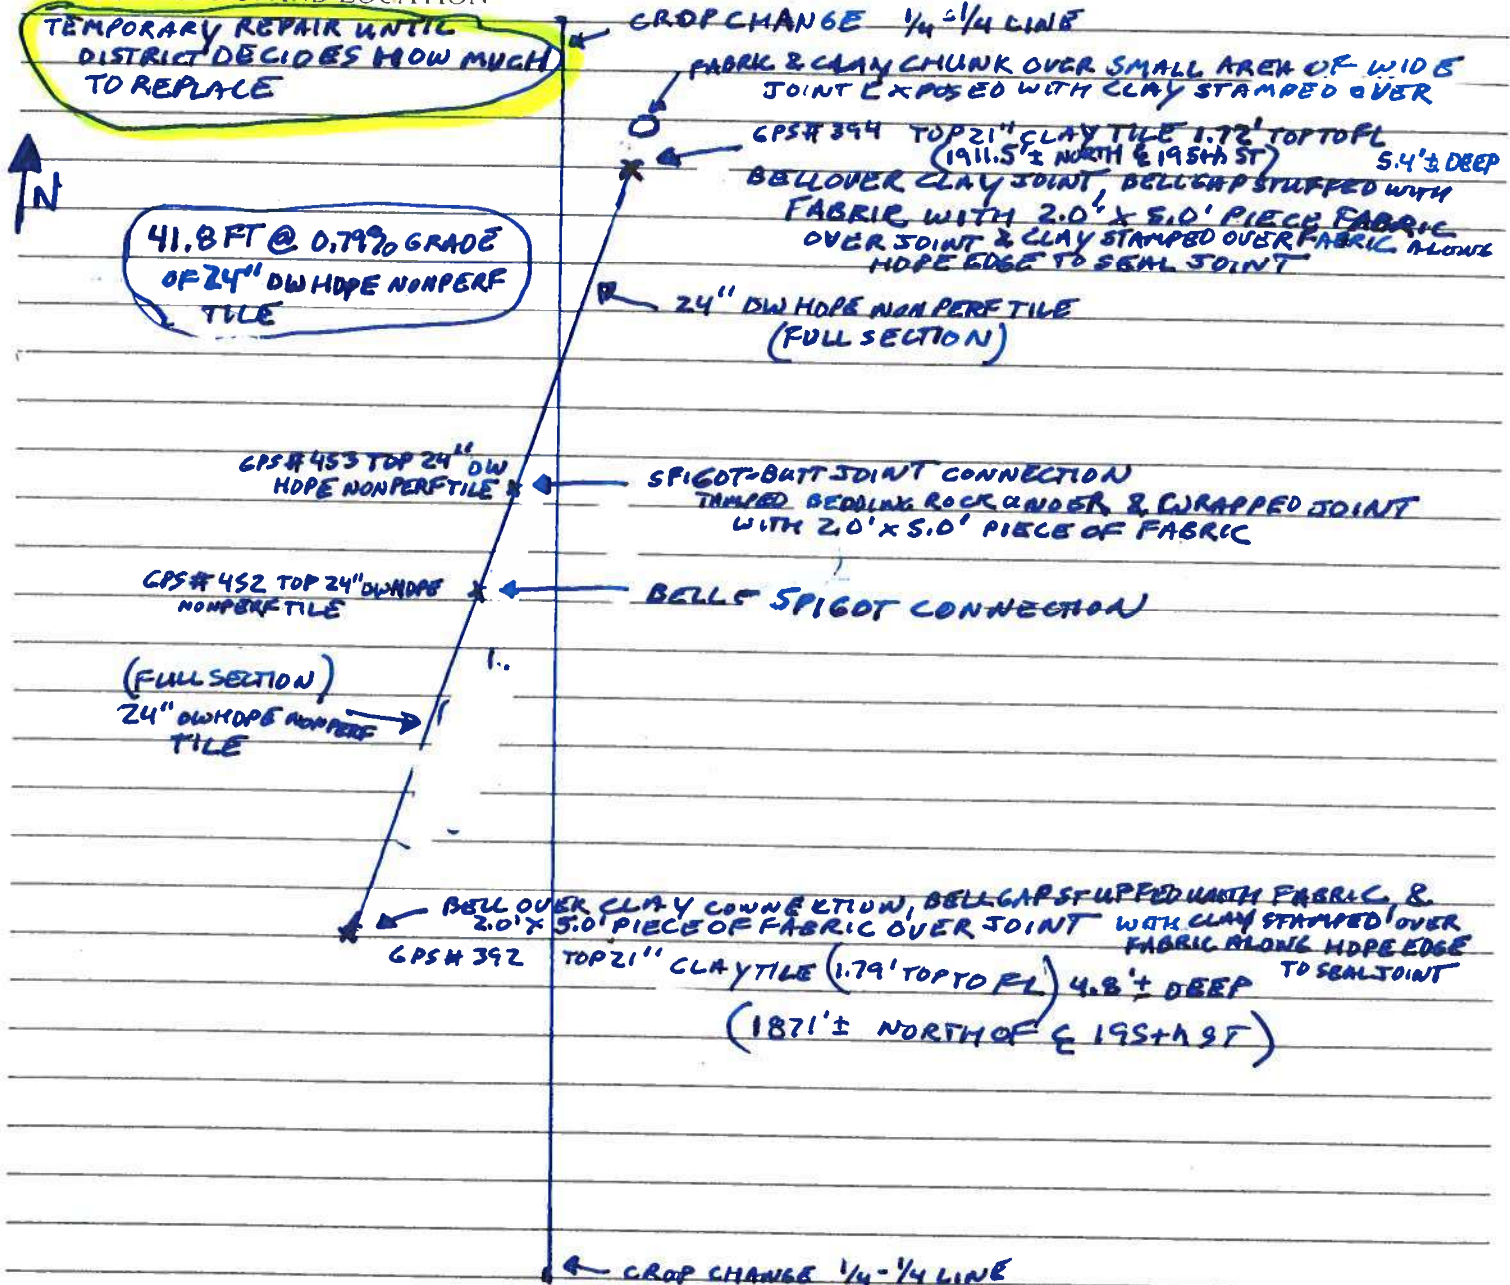 AND LOCATION
TEMPORARY REPAIR UNTIL
DISTRICT DECIDES HOW MUCH
TO REPLACE
CROP CHANGE 1/4-1/4 LINE
FABRIC & CLAY CHUNK OVER SMALL AREA OF WIDE
JOINT EXPOSED WITH CLAY STAMPED OVER
GPS# 394 TOP 21" CLAY TILE 1.72' TOP TO FL
(1911.5'± NORTH ℄ 195th ST) 5.4'± DEEP
BELL OVER CLAY JOINT, BELL GAP STUFFED WITH
FABRIR WITH 2.0' X 5.0' PIECE FABRIC
OVER JOINT & CLAY STAMPED OVER FABRIC ALONG
HDPE EDGE TO SEAL JOINT
N
41.8 FT @ 0.79% GRADE
OF 24" DW HDPE NONPERF
TILE
24" DW HDPE NONPERF TILE
(FULL SECTION)
GPS# 453 TOP 24" DW
HDPE NONPERF TILE
SPIGOT-BUTT JOINT CONNECTION
TAMPED BEDDING ROCK UNDER & WRAPPED JOINT
WITH 2.0' X 5.0' PIECE OF FABRIC
GPS# 452 TOP 24" DW HDPE
NONPERF TILE
BELL - SPIGOT CONNECTION
(FULL SECTION)
24" DW HDPE NONPERF
TILE
BELL OVER CLAY CONNECTION, BELL GAP STUFFED WITH FABRIC, &
2.0' X 5.0' PIECE OF FABRIC OVER JOINT WITH CLAY STAMPED OVER
FABRIC ALONG HDPE EDGE
TO SEAL JOINT
GPS# 392 TOP 21" CLAY TILE (1.79' TOP TO FL) 4.8'± DEEP
(1871'± NORTH OF ℄ 195th ST)
CROP CHANGE 1/4-1/4 LINE